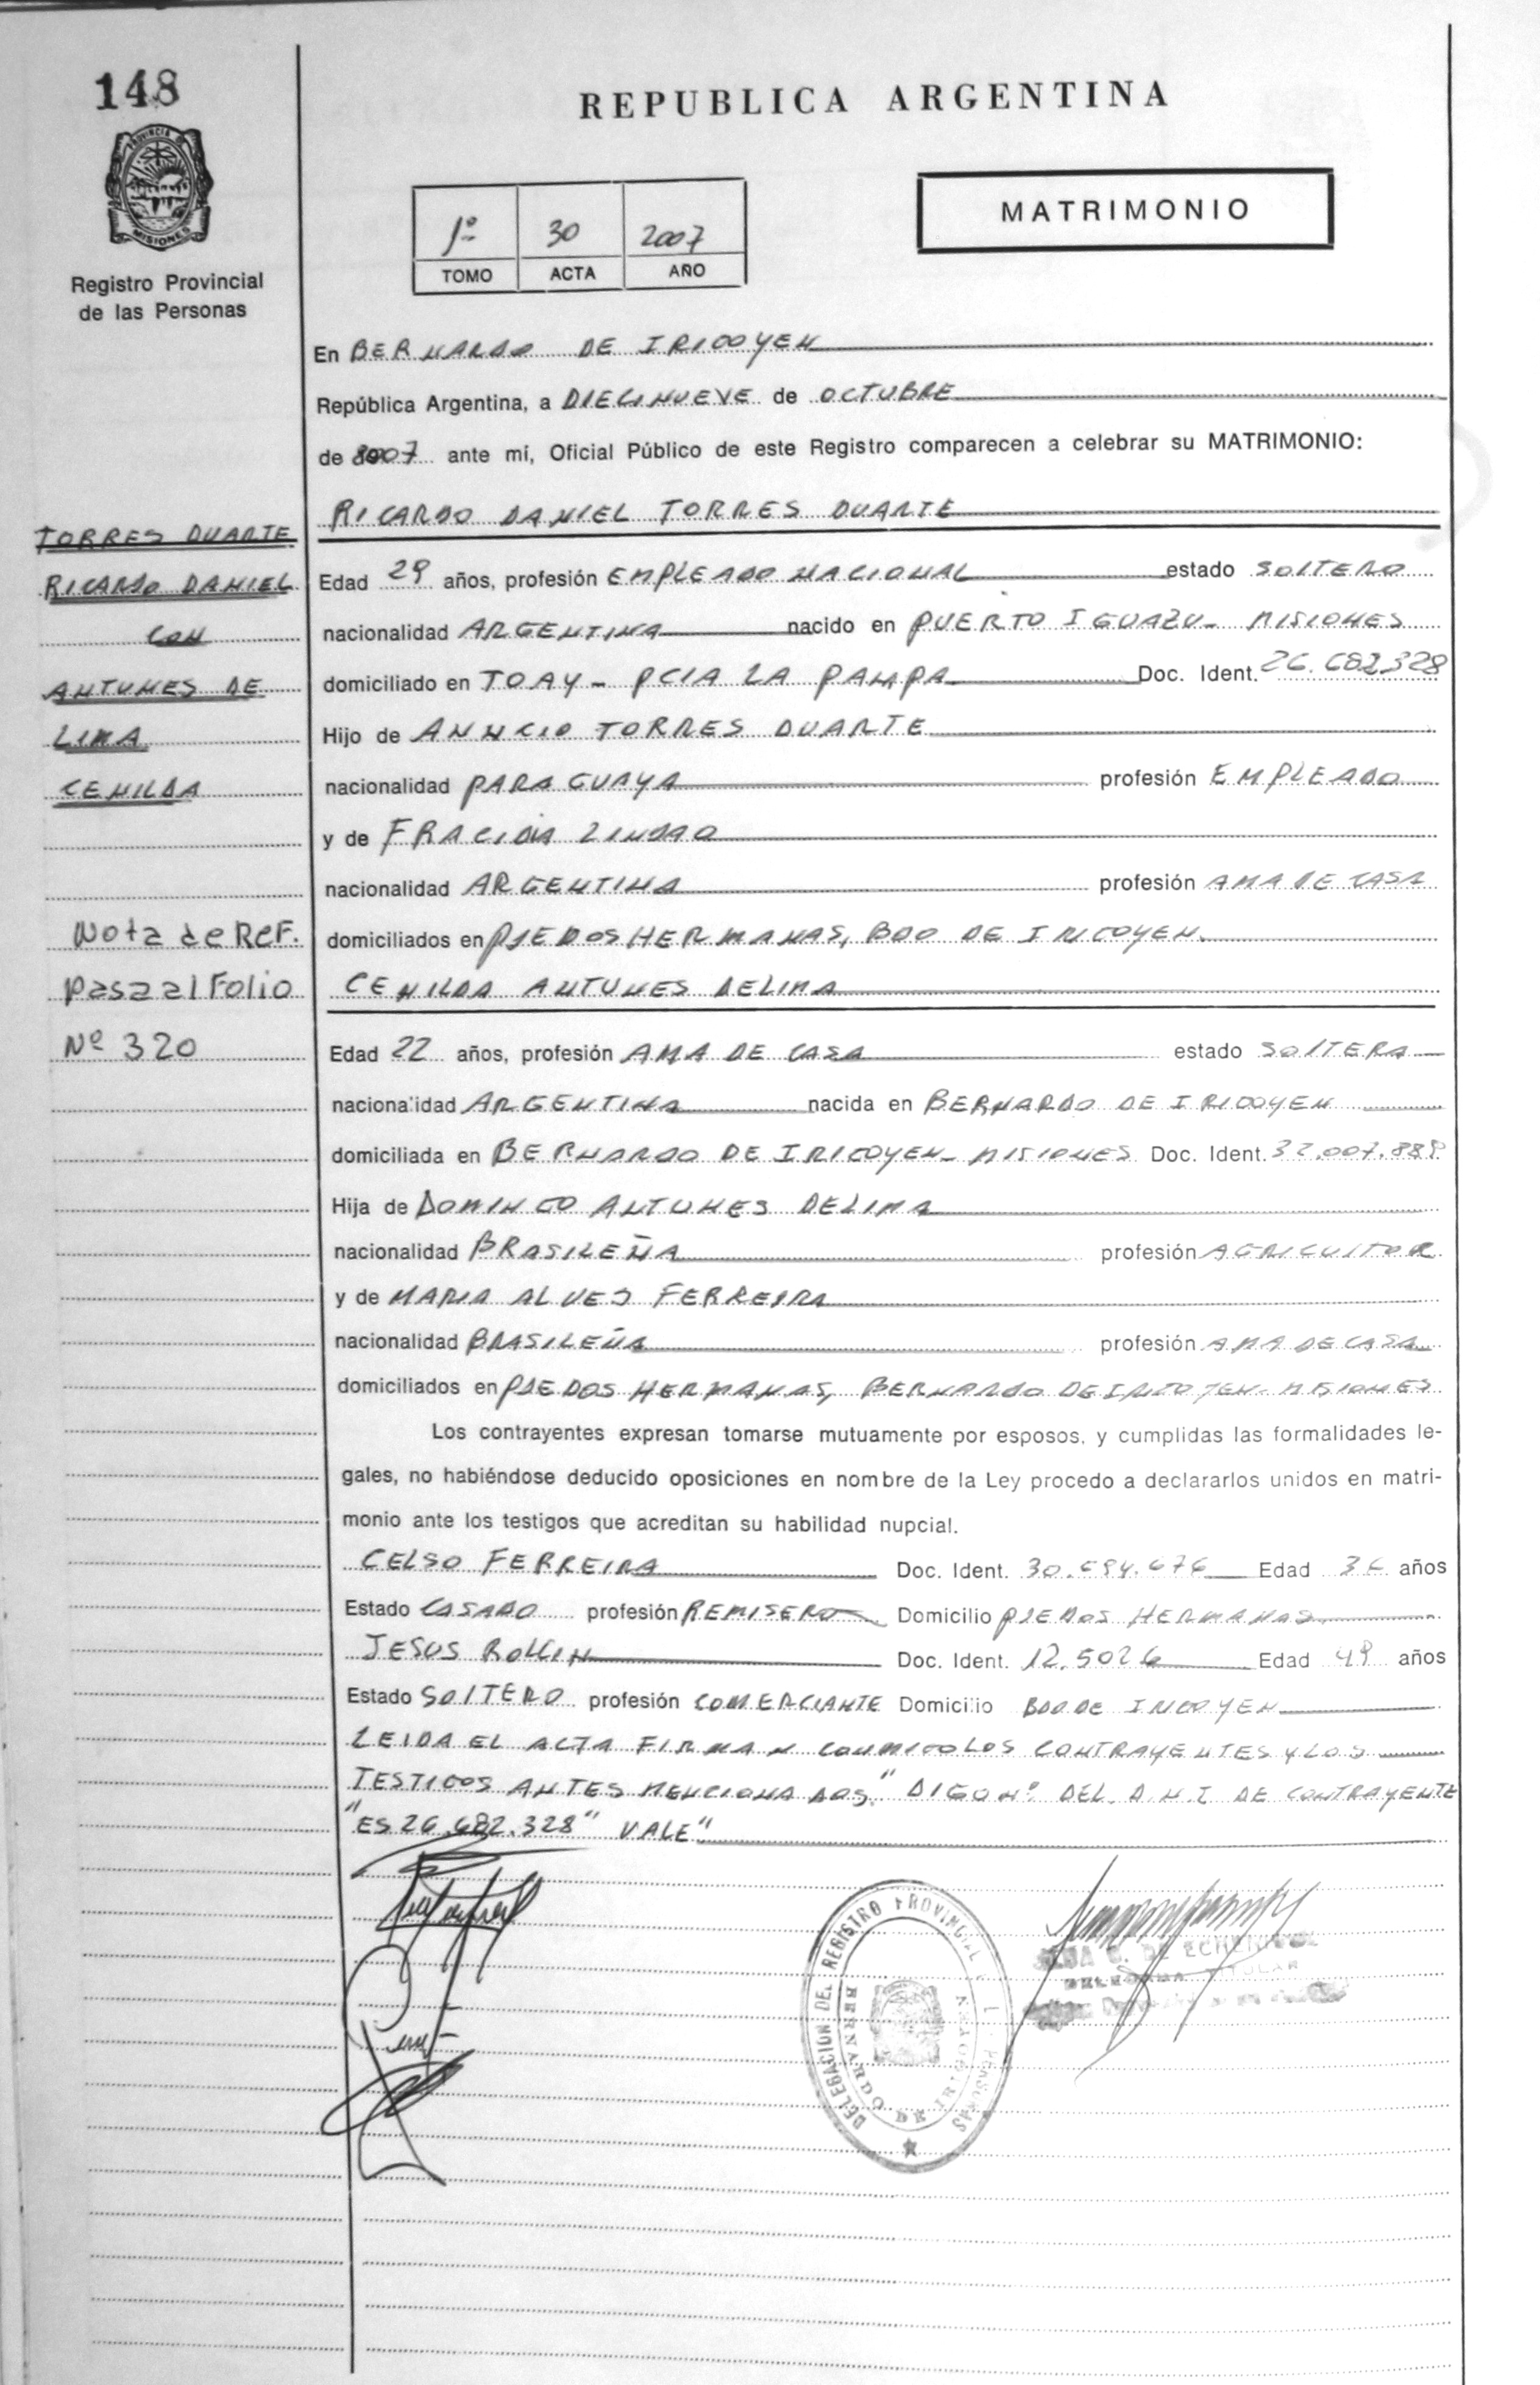 148
REPUBLICA ARGENTINA
PROVINCIA DE
MISIONES
1º 30 2007
TOMO ACTA AÑO
MATRIMONIO
Registro Provincial
de las Personas
En BERNARDO DE IRIGOYEN
República Argentina, a DIECINUEVE de OCTUBRE
de 2007 ante mi, Oficial Público de este Registro comparecen a celebrar su MATRIMONIO:
RICARDO DANIEL TORRES DUARTE
TORRES DUARTE
RICARDO DANIEL
CON
ANTUNES DE
LIMA
CENILDA
Nota de Ref.
pasa al Folio
Nº 320
Edad 29 años, profesión EMPLEADO NACIONAL estado SOLTERO
nacionalidad ARGENTINA nacido en PUERTO IGUAZU - MISIONES
domiciliado en TOAY - PCIA LA PAMPA Doc. Ident. 26.682.328
Hijo de TORRES DUARTE
nacionalidad PARAGUAYA profesión EMPLEADO
y de
nacionalidad ARGENTINA profesión AMA DE CASA
domiciliados en PJE DOS HERMANAS, BDO DE IRIGOYEN
CENILDA ANTUNES DE LIMA
Edad 22 años, profesión AMA DE CASA estado SOLTERA
nacionalidad ARGENTINA nacida en BERNARDO DE IRIGOYEN
domiciliada en BERNARDO DE IRIGOYEN - MISIONES Doc. Ident.
Hija de DOMINGO ANTUNES DE LIMA
nacionalidad BRASILEÑA profesión AGRICULTOR
y de MARIA ALVES FERREIRA
nacionalidad BRASILEÑA profesión AMA DE CASA
domiciliados en PJE DOS HERMANAS, BERNARDO DE IRIGOYEN - MISIONES
Los contrayentes expresan tomarse mutuamente por esposos, y cumplidas las formalidades le-
gales, no habiéndose deducido oposiciones en nombre de la Ley procedo a declararlos unidos en matri-
monio ante los testigos que acreditan su habilidad nupcial.
CELSO FERREIRA Doc. Ident. Edad 36 años
Estado CASADO profesión REMISERO Domicilio PJE DOS HERMANAS
JESUS Doc. Ident. Edad 49 años
Estado SOLTERO profesión COMERCIANTE Domicilio BDO DE IRIGOYEN
LEIDA EL ACTA FIRMAN CONMIGO LOS CONTRAYENTES Y LOS
TESTIGOS ANTES MENCIONADOS." DIGO Nº DEL D.N.I DE CONTRAYENTE
"ES 26.682.328" VALE"
DELEGACION DEL REGISTRO PROVINCIAL PERSONAS
BERNARDO DE IRIGOYEN
DE ECHENIQUE
DELEGADA TITULAR